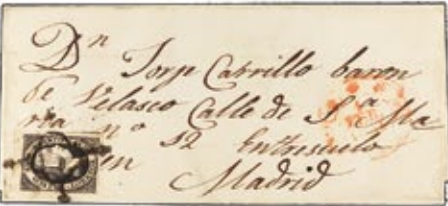 Dn Jorge Carrillo baron
de Velasco Calle de Sta Ma
ria no 12 Entresuelo
en
Madrid